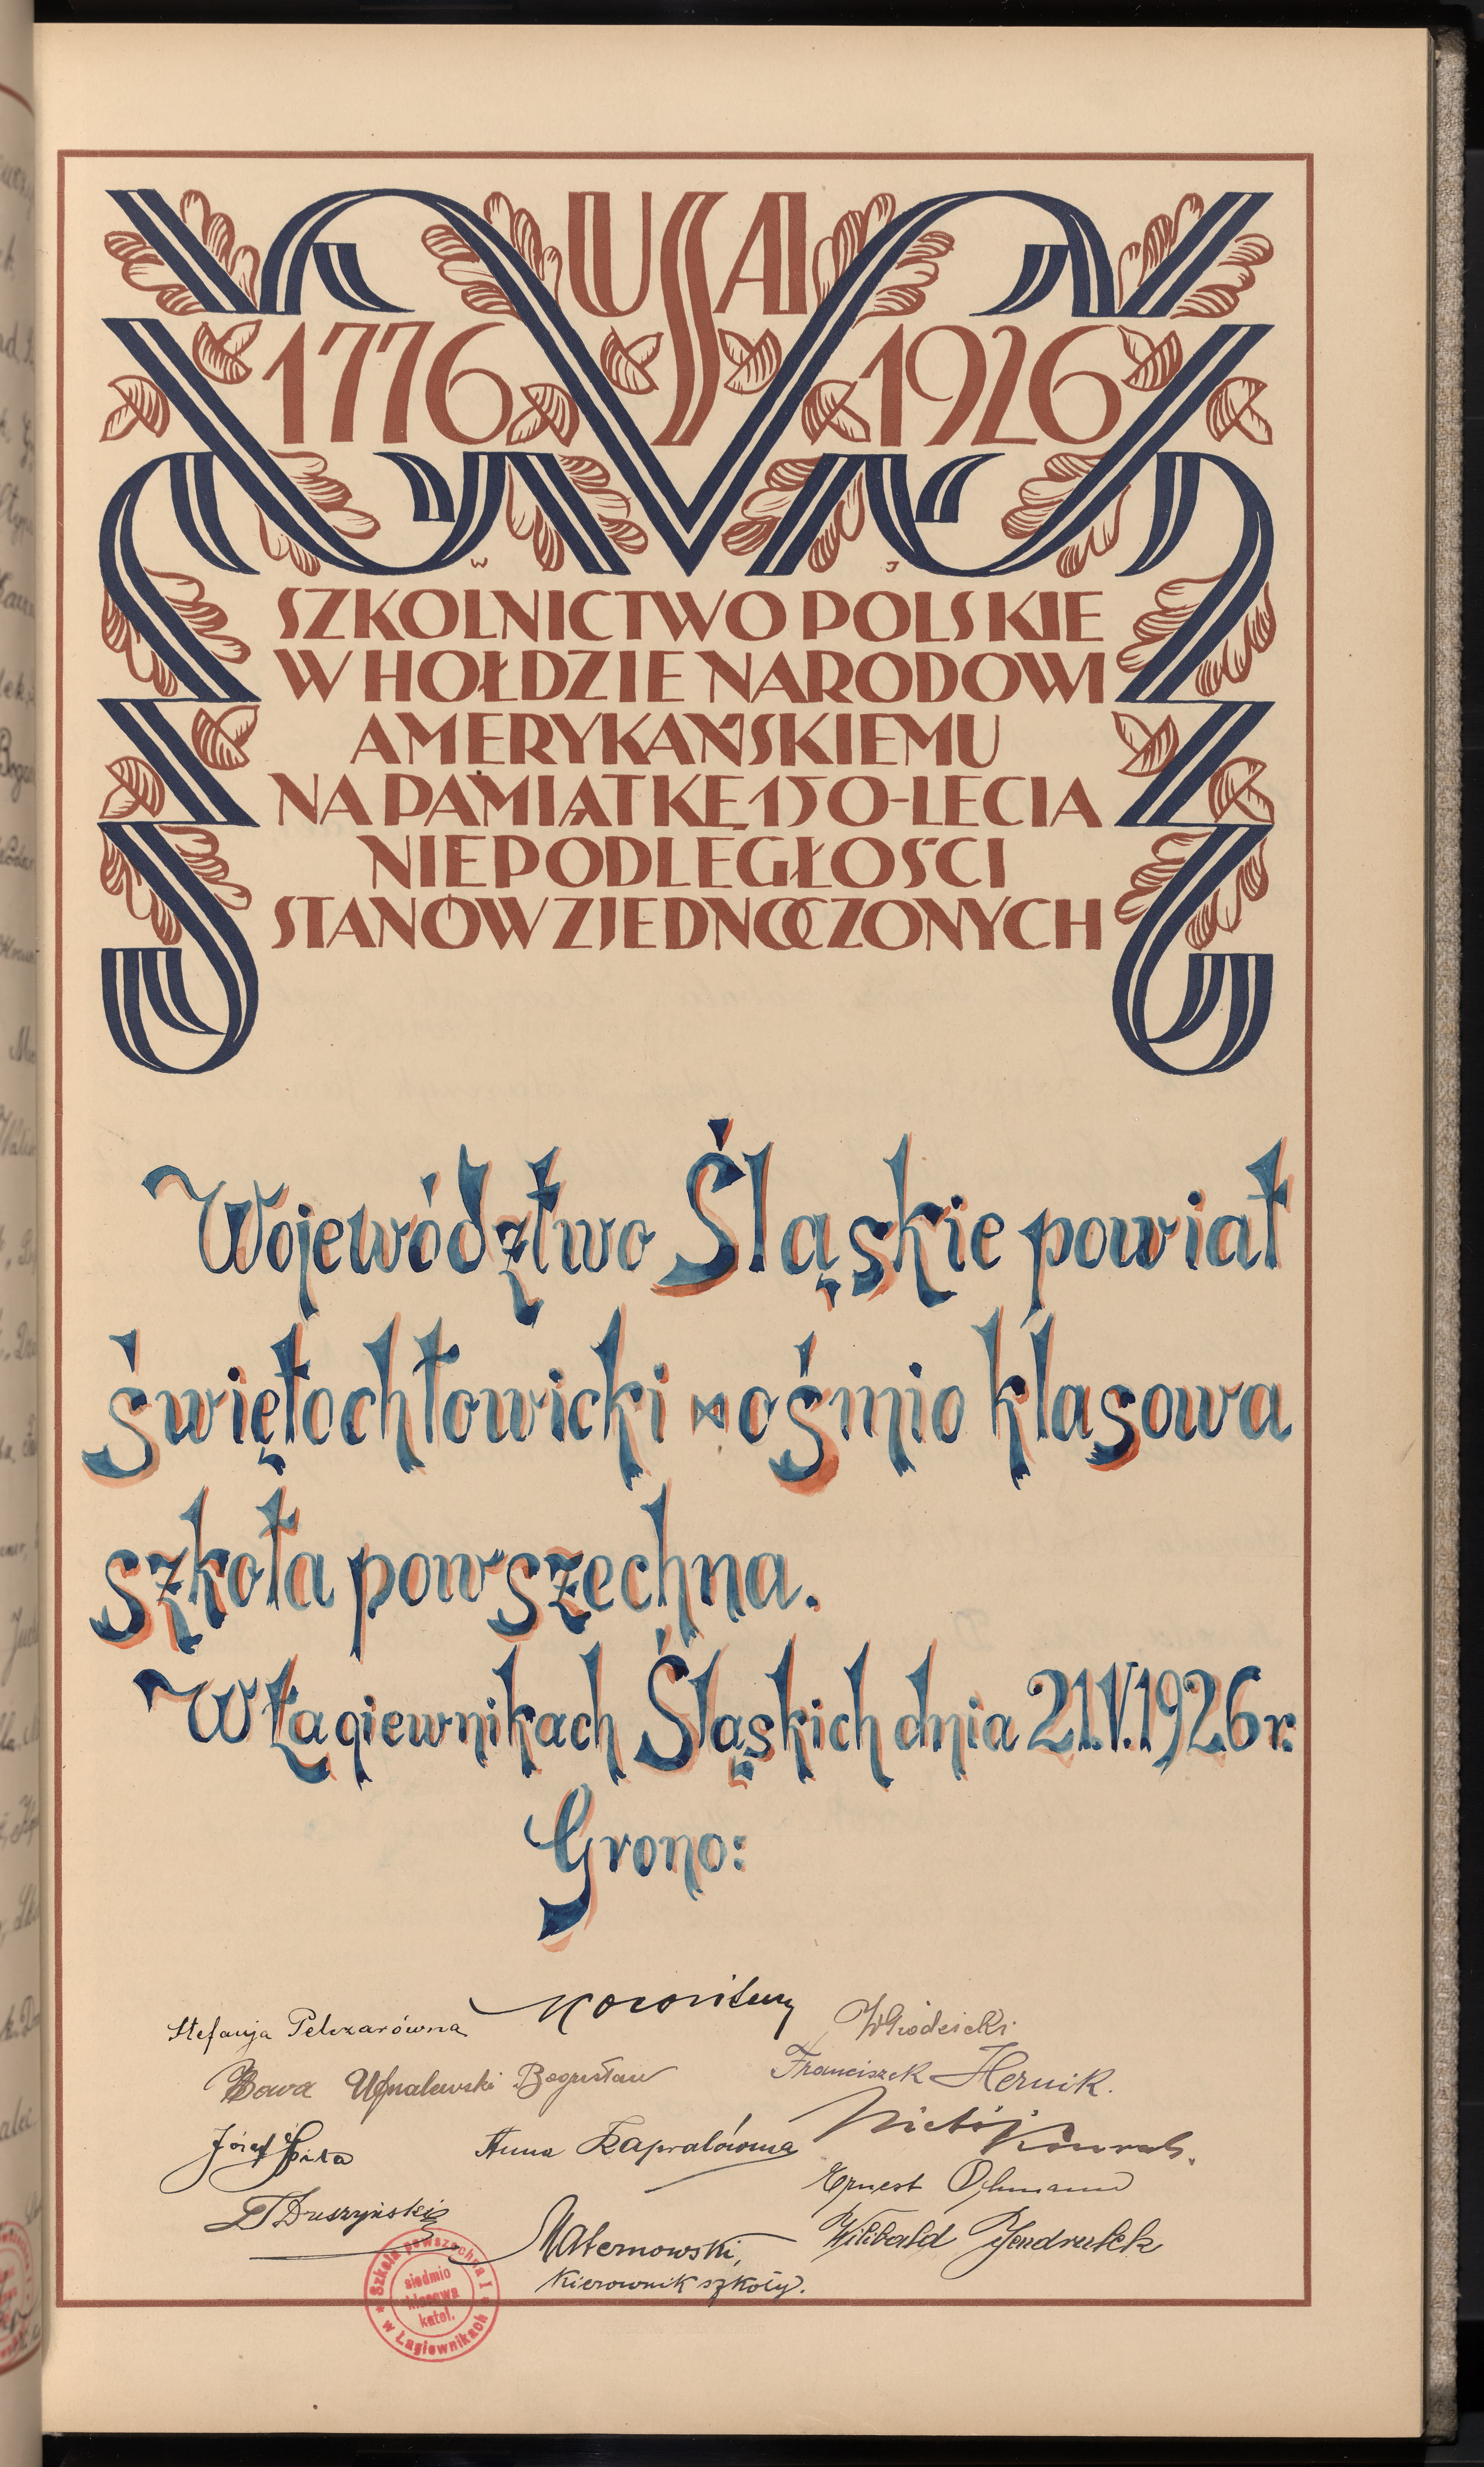 USA
1776 1926
W J
SZKOLNICTWO POLSKIE
W HOŁDZIE NARODOWI
AMERYKAŃSKIEMU
NA PAMIĄTKĘ 150-LECIA
NIEPODLEGŁOŚCI
STANÓW ZJEDNOCZONYCH
Województwo Śląskie powiat
świętochłowicki ośmio klasowa
szkoła powszechna.
W Łagiewnikach Śląskich dnia 21.V.1926 r.
Grono:
Stefanja Pelczarówna
Franciszek Hernik.
Bogusław
Józef
Anna Kapralówna
Ernest Ochmann
Druszyński
Wilibald Jendrutek
Maternowski,
Kierownik szkoły.
Szkoła powszechna I
siedmio
klasowa
katol.
w Łagiewnikach